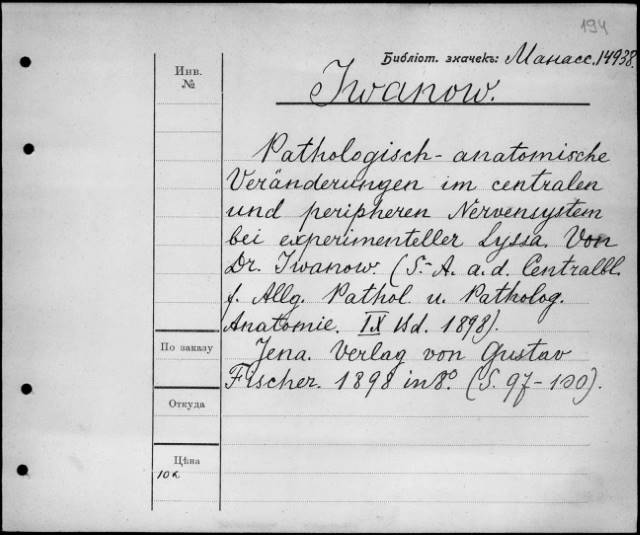 194
Библіот. значекъ: Манасс. 14938.
Инв.
№
Iwanow.
Pathologisch-anatomische
Veränderungen im centralen
und peripheren Nervensystem
bei experimenteller Lyssa. Von
Dr. Iwanow. (S.-A. a. d. Centralbl.
f. Allg. Pathol. u. Patholog.
Anatomie. IX Bd. 1898).
По заказу
Jena. Verlag von Gustav
Fischer. 1898 in 8.º (S. 97-100).
Откуда
Цѣна
10 к